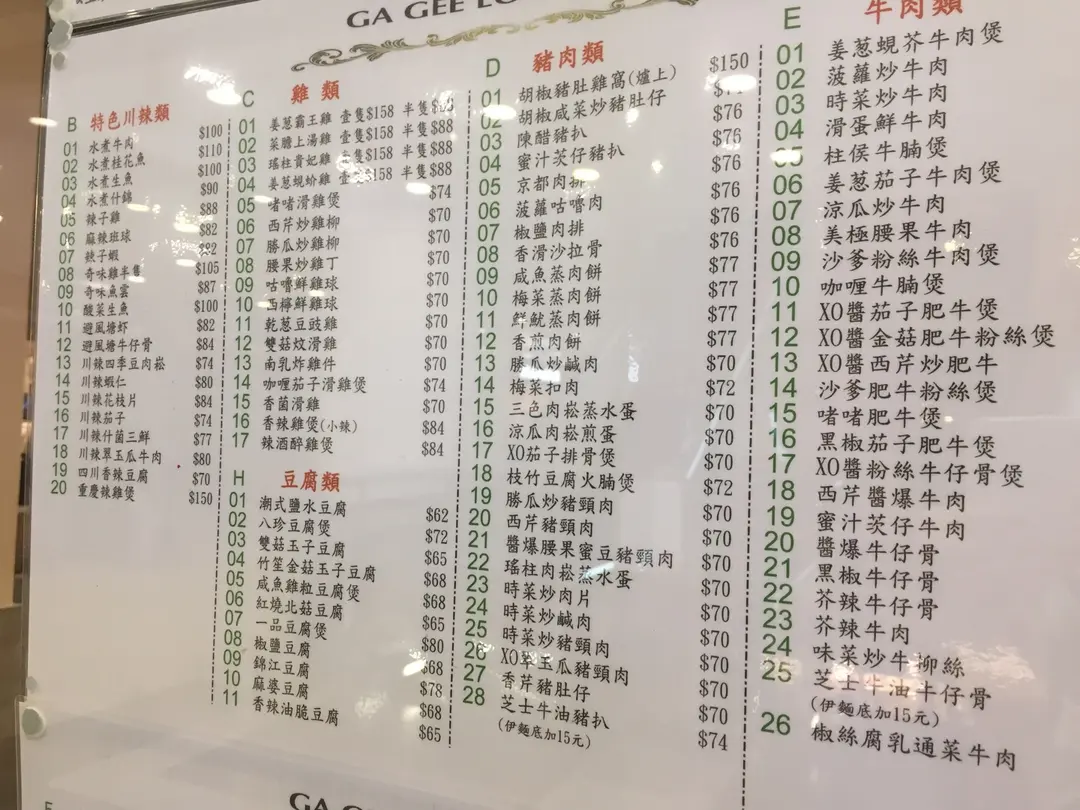 GA GEE
B 特色川辣類
01 水煮牛肉 $100
02 水煮桂花魚 $110
03 水煮生魚 $100
04 水煮什錦 $90
05 辣子雞 $88
06 麻辣班球 $82
07 辣子蝦 $82
08 奇味雞半隻 $105
09 奇味魚雲 $87
10 酸菜生魚 $100
11 避風塘虾 $82
12 避風塘牛仔骨 $84
13 川辣四季豆肉崧 $74
14 川辣蝦仁 $80
15 川辣花枝片 $84
16 川辣茄子 $74
17 川辣什菌三鮮 $77
18 川辣翠玉瓜牛肉 $80
19 四川香辣豆腐 $70
20 重慶辣雞煲 $150
C 雞類
01 姜葱霸王雞 壹隻$158 半隻
02 菜膽上湯雞 壹隻$158 半隻$88
03 瑤柱貴妃雞 壹隻$158 半隻$88
04 姜葱蜆蚧雞 壹隻$158 半隻$88
05 啫啫滑雞煲 $74
06 西芹炒雞柳 $70
07 勝瓜炒雞柳 $70
08 腰果炒雞丁 $70
09 咕嚕鮮雞球 $70
10 西檸鮮雞球 $70
11 乾葱豆豉雞 $70
12 雙菇炆滑雞 $70
13 南乳炸雞件 $70
14 咖喱茄子滑雞煲 $74
15 香菌滑雞 $70
16 香辣雞煲(小辣) $84
17 辣酒醉雞煲 $84
H 豆腐類
01 潮式鹽水豆腐 $62
02 八珍豆腐煲 $72
03 雙菇玉子豆腐 $65
04 竹笙金菇玉子豆腐 $68
05 咸魚雞粒豆腐煲 $68
06 紅燒北菇豆腐 $65
07 一品豆腐煲 $80
08 椒鹽豆腐 $68
09 錦江豆腐 $78
10 麻婆豆腐 $68
11 香辣油脆豆腐 $65
D 豬肉類
01 胡椒豬肚雞窩(爐上) $150
02 胡椒咸菜炒豬肚仔
03 陳醋豬扒 $76
04 蜜汁茨仔豬扒 $76
05 京都肉排 $76
06 菠蘿咕嚕肉 $76
07 椒鹽肉排 $76
08 香滑沙拉骨 $76
09 咸魚蒸肉餅 $77
10 梅菜蒸肉餅 $77
11 鮮魷蒸肉餅 $77
12 香煎肉餅 $77
13 勝瓜炒鹹肉 $70
14 梅菜扣肉 $72
15 三色肉崧蒸水蛋 $70
16 涼瓜肉崧煎蛋 $70
17 XO茄子排骨煲 $70
18 枝竹豆腐火腩煲 $72
19 勝瓜炒豬頸肉 $70
20 西芹豬頸肉 $70
21 醬爆腰果蜜豆豬頸肉 $70
22 瑤柱肉崧蒸水蛋 $70
23 時菜炒肉片 $70
24 時菜炒鹹肉 $70
25 時菜炒豬頸肉 $70
26 XO翠玉瓜豬頸肉 $70
27 香芹豬肚仔 $70
28 芝士牛油豬扒 $74
(伊麵底加15元)
E 牛肉類
01 姜葱蜆芥牛肉煲
02 菠蘿炒牛肉
03 時菜炒牛肉
04 滑蛋鮮牛肉
05 柱侯牛腩煲
06 姜葱茄子牛肉煲
07 涼瓜炒牛肉
08 美極腰果牛肉
09 沙爹粉絲牛肉煲
10 咖喱牛腩煲
11 XO醬茄子肥牛煲
12 XO醬金菇肥牛粉絲煲
13 XO醬西芹炒肥牛
14 沙爹肥牛粉絲煲
15 啫啫肥牛煲
16 黑椒茄子肥牛煲
17 XO醬粉絲牛仔骨煲
18 西芹醬爆牛肉
19 蜜汁茨仔牛肉
20 醬爆牛仔骨
21 黑椒牛仔骨
22 芥辣牛仔骨
23 芥辣牛肉
24 味菜炒牛柳絲
25 芝士牛油牛仔骨
(伊麵底加15元)
26 椒絲腐乳通菜牛肉
GA